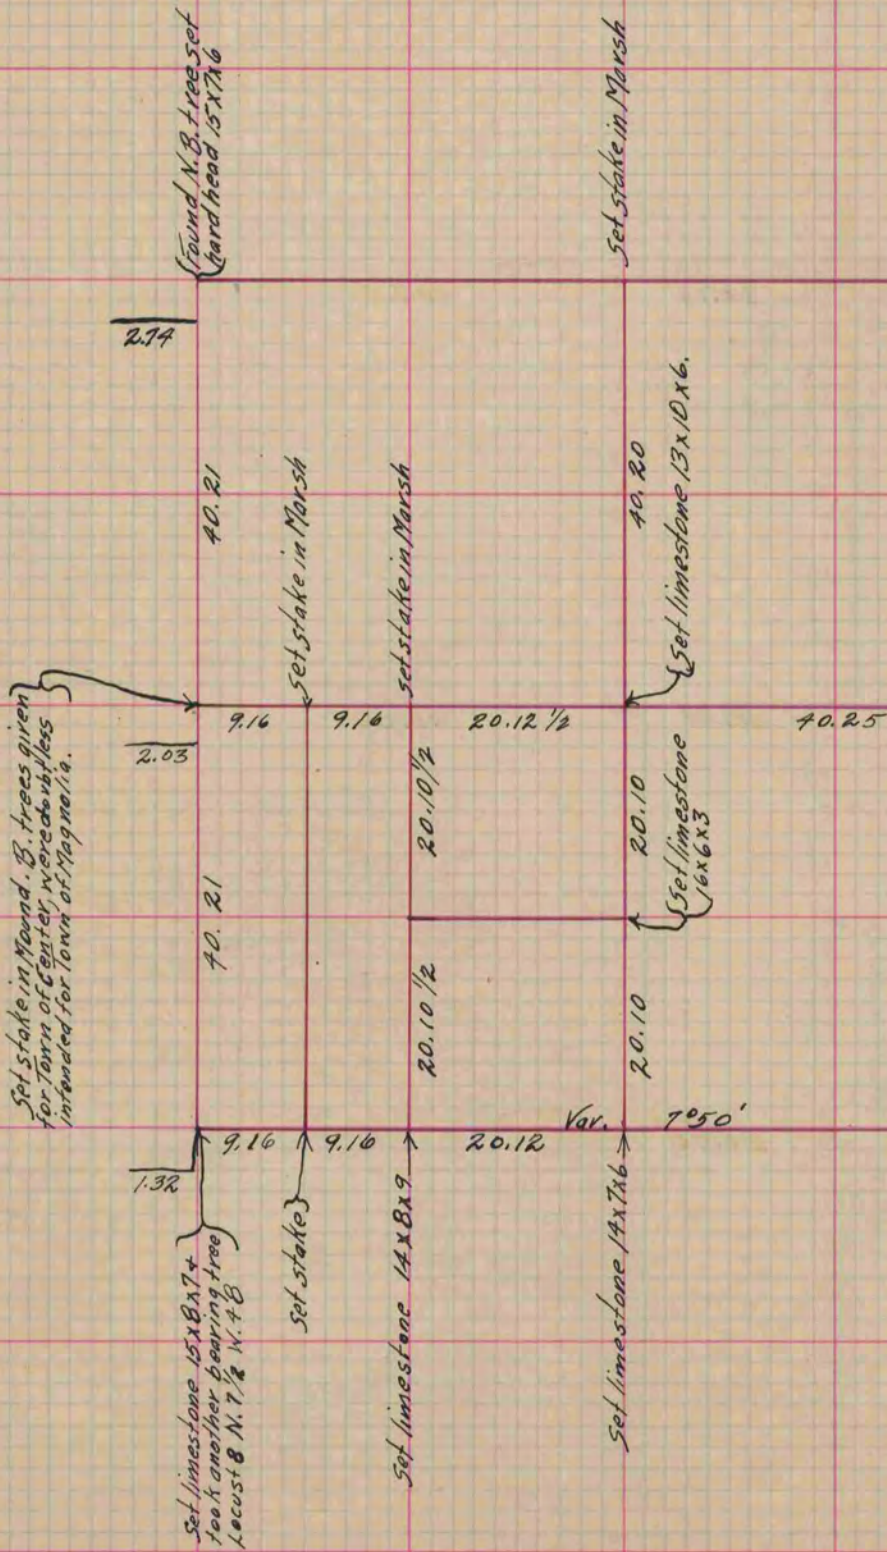 {Found N.B. tree set
hard head 15x7x6
Set stake in Marsh
2.74
40.21
40.20
Set stake in Marsh
set stake in Marsh
Set limestone 13x10x6.
Set stake in Mound. B. trees given
for Town of Center, were doubtless
intended for Town of Magnolia.
2.03
9.16
9.16
20.12 1/2
40.25
40.21
20.10 1/2
20.10
Set limestone
16x6x3
20.10 1/2
20.10
1.32
9.16
9.16
20.12
Var. 7°50'
Set limestone 15x8x7 +
took another bearing tree
Locust 8 N. 7 1/2 W. 48
Set stake
Set limestone 14x8x9
Set limestone 14x7x6